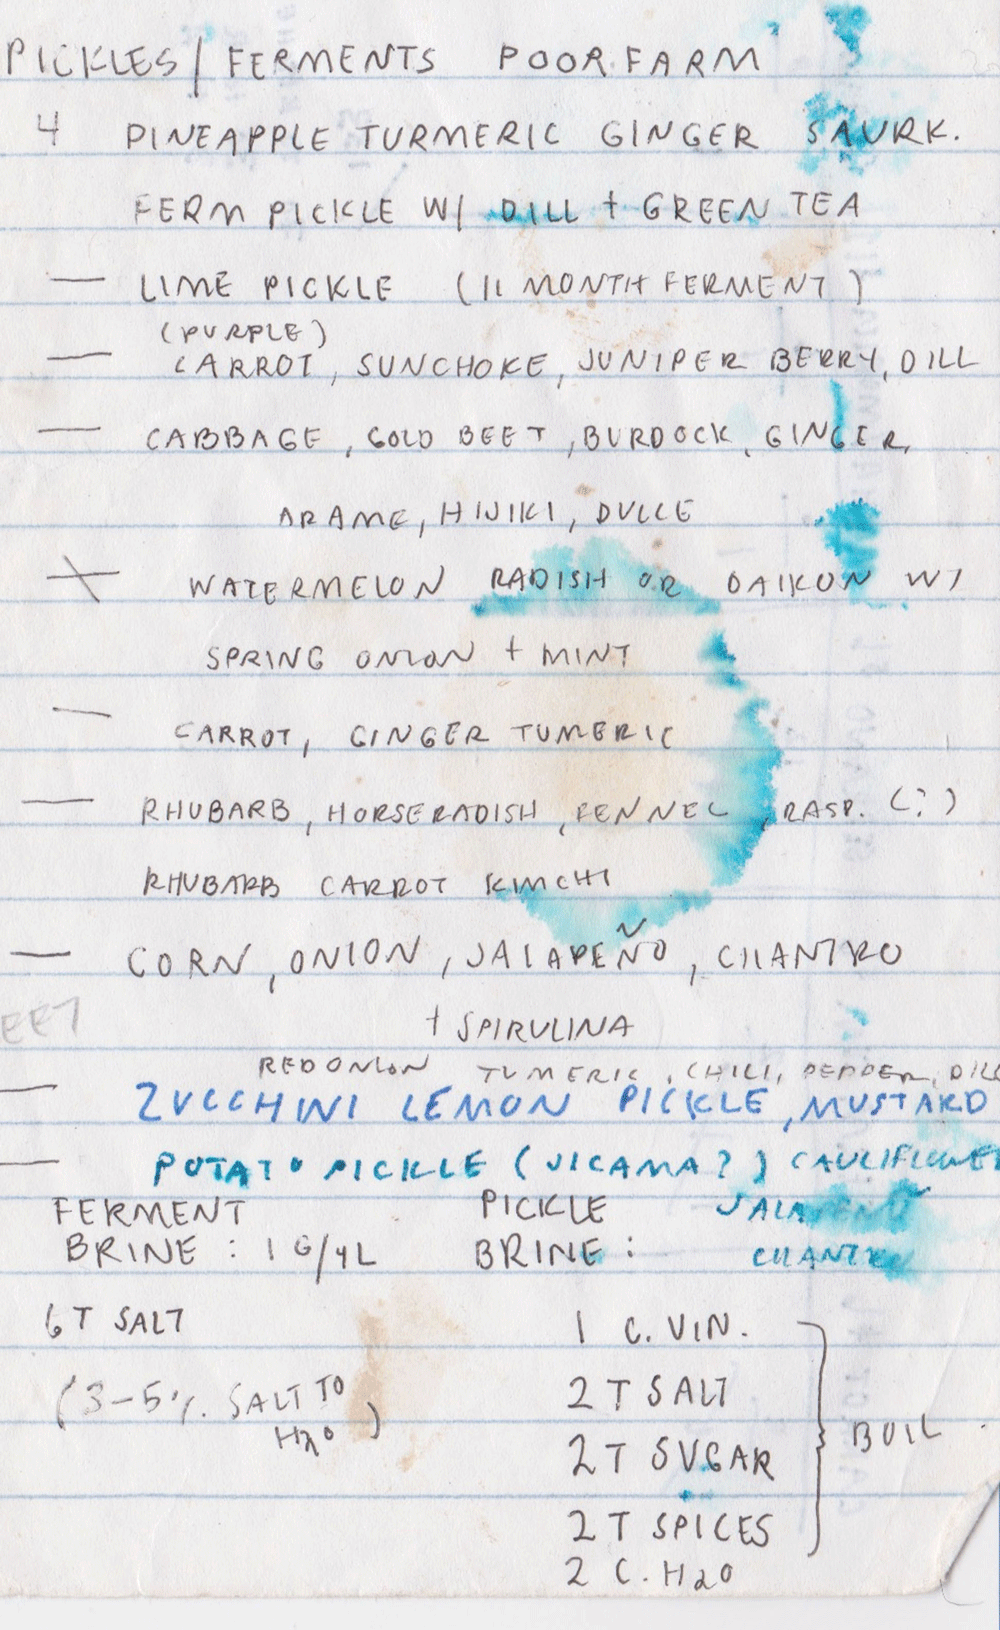 PICKLES/FERMENTS POOR FARM
4 PINEAPPLE TURMERIC GINGER SAURK.
FERM PICKLE W/ DILL + GREEN TEA
— LIME PICKLE (11 MONTH FERMENT)
(PURPLE)
— CARROT, SUNCHOKE, JUNIPER BERRY, DILL
— CABBAGE, GOLD BEET, BURDOCK, GINGER,
ARAME, HIJIKI, DULCE
WATERMELON RADISH OR DAIKON W/
SPRING ONION + MINT
— CARROT, GINGER TUMERIC
— RHUBARB, HORSERADISH, FENNEL, RASP. (?)
RHUBARB CARROT KIMCHI
— CORN, ONION, JALAPEÑO, CILANTRO
+ SPIRULINA
RED ONION TUMERIC, CHILI, PEPPER, DILL
— ZUCCHINI LEMON PICKLE, MUSTARD
— POTATO PICKLE (JICAMA?) CAULIFLOWER
FERMENT PICKLE JALAPENO
BRINE: 1 G/4L BRINE: CILANTRO
6 T SALT 1 C. VIN.
(3-5%. SALT TO H2O) 2 T SALT
2 T SUGAR BOIL
2 T SPICES
2 C. H2O